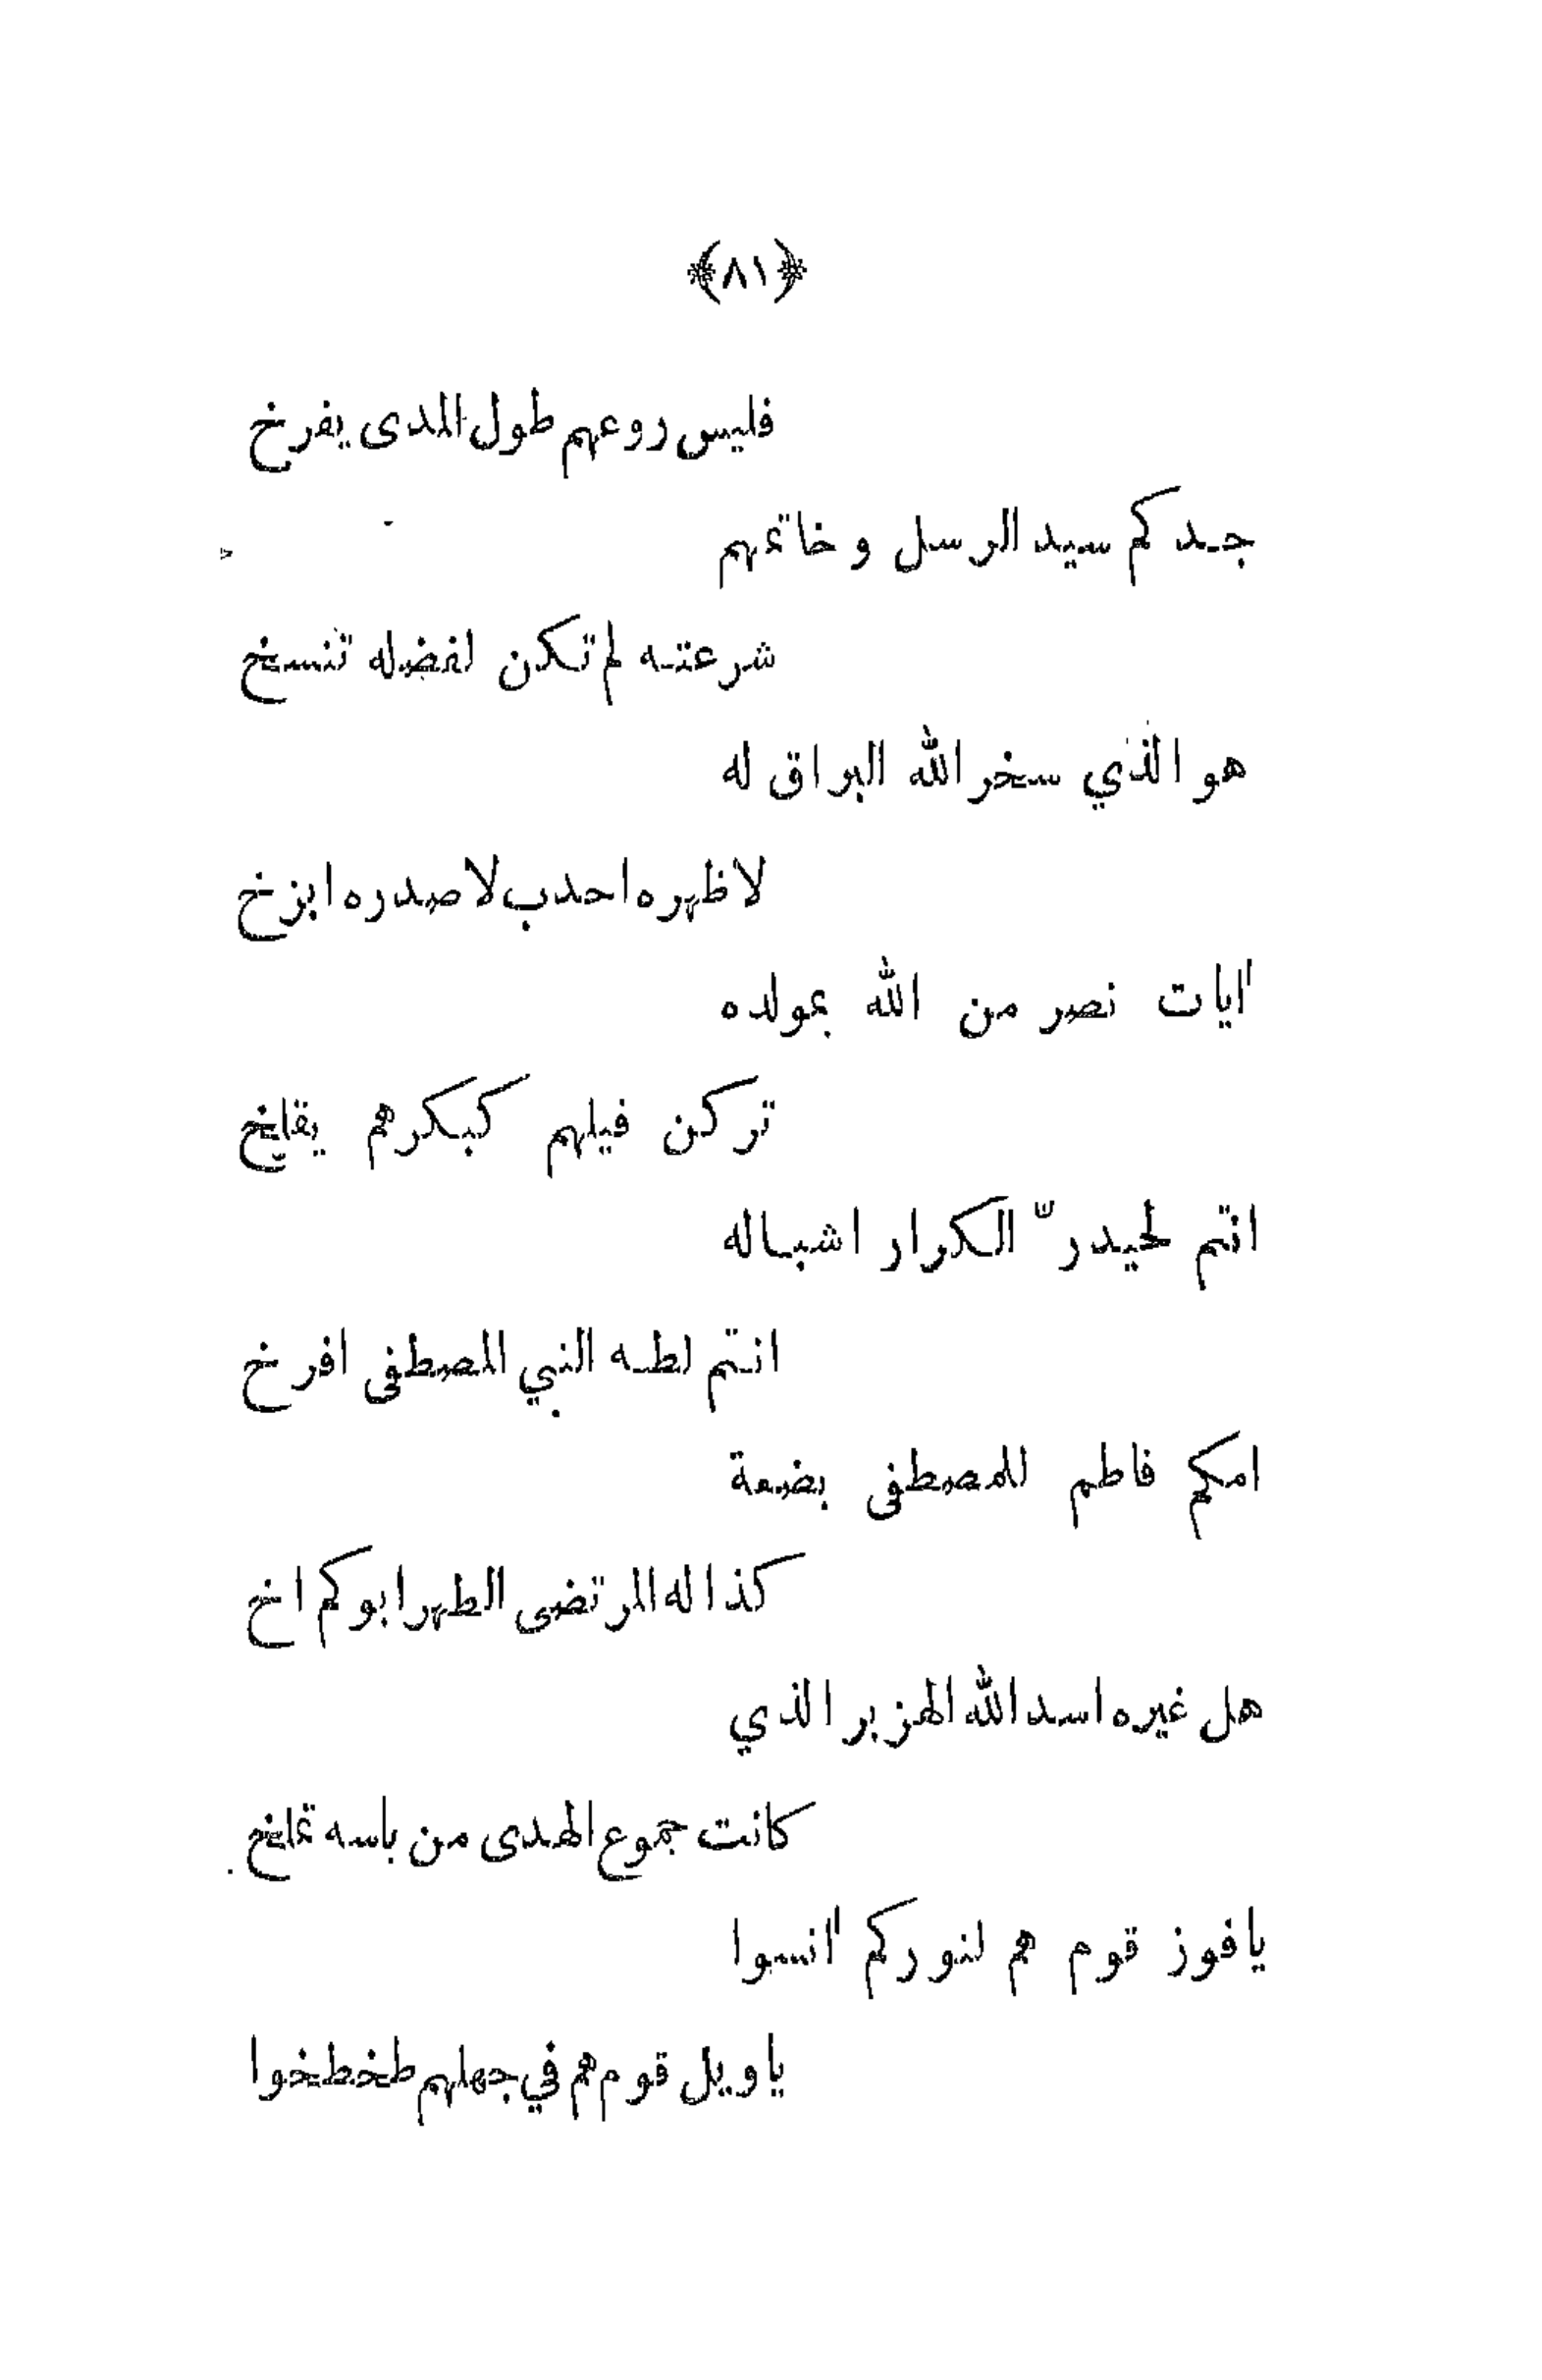 ﴿٨١﴾
فليس روعهم طول المدى يفرخ
جدكم سيد الرسل وخاتمهم
شرعته لم تكن لفضله تنسخ
هو الذي سخر الله البراق له
لا ظهره احدب لا صدره ابزخ
اايات نصر من الله بمولده
تركن فيلهم كبكرهم يقلخ
انتم لحيدرّ الكرار اشباله
انتم لطه النبي المصطفى افرخ
امكم فاطم للمصطفى بضعة
كذا له المرتضى الطهر ابوكم اخ
هل غيره اسد الله الهزبر الذي
كانت جموع الهدى من باسه تملخ
يافوز قوم هم لنوركم اانسوا
ياويل قوم هم في جهلهم طخطخوا